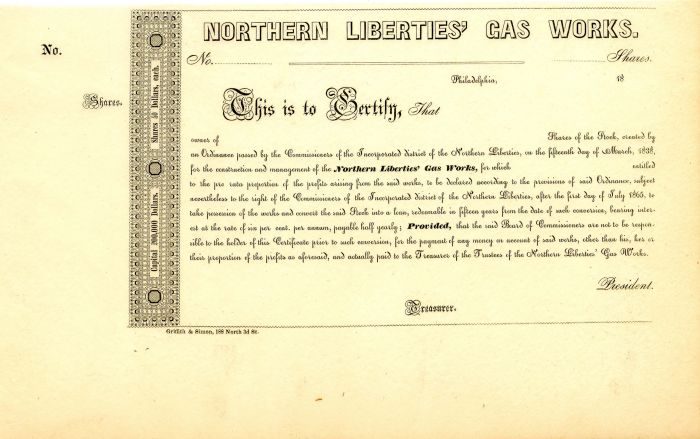 NORTHERN LIBERTIES' GAS WORKS.
No.
No. Shares.
Philadelphia, 18
Shares.
This is to Certify, That
Shares 25 Dollars, each.
Capital 200,000 Dollars.
owner of Shares of the Stock, created by
an Ordinance passed by the Commissioners of the Incorporated district of the Northern Liberties, on the fifteenth day of March, 1838,
for the construction and management of the Northern Liberties' Gas Works, for which entitled
to the pro rata proportion of the profits arising from the said works, to be declared according to the provisions of said Ordinance, subject
nevertheless to the right of the Commissioners of the Incorporated district of the Northern Liberties, after the first day of July 1865, to
take possession of the works and convert the said Stock into a loan, redeemable in fifteen years from the date of such conversion, bearing inter-
est at the rate of six per cent. per annum, payable half yearly; Provided, that the said Board of Commissioners are not to be respon-
sible to the holder of this Certificate prior to such conversion, for the payment of any money on account of said works, other than his, her or
their proportion of the profits as aforesaid, and actually paid to the Treasurer of the Trustees of the Northern Liberties' Gas Works.
President.
Treasurer.
Griffith & Simon, 188 North 3d St.